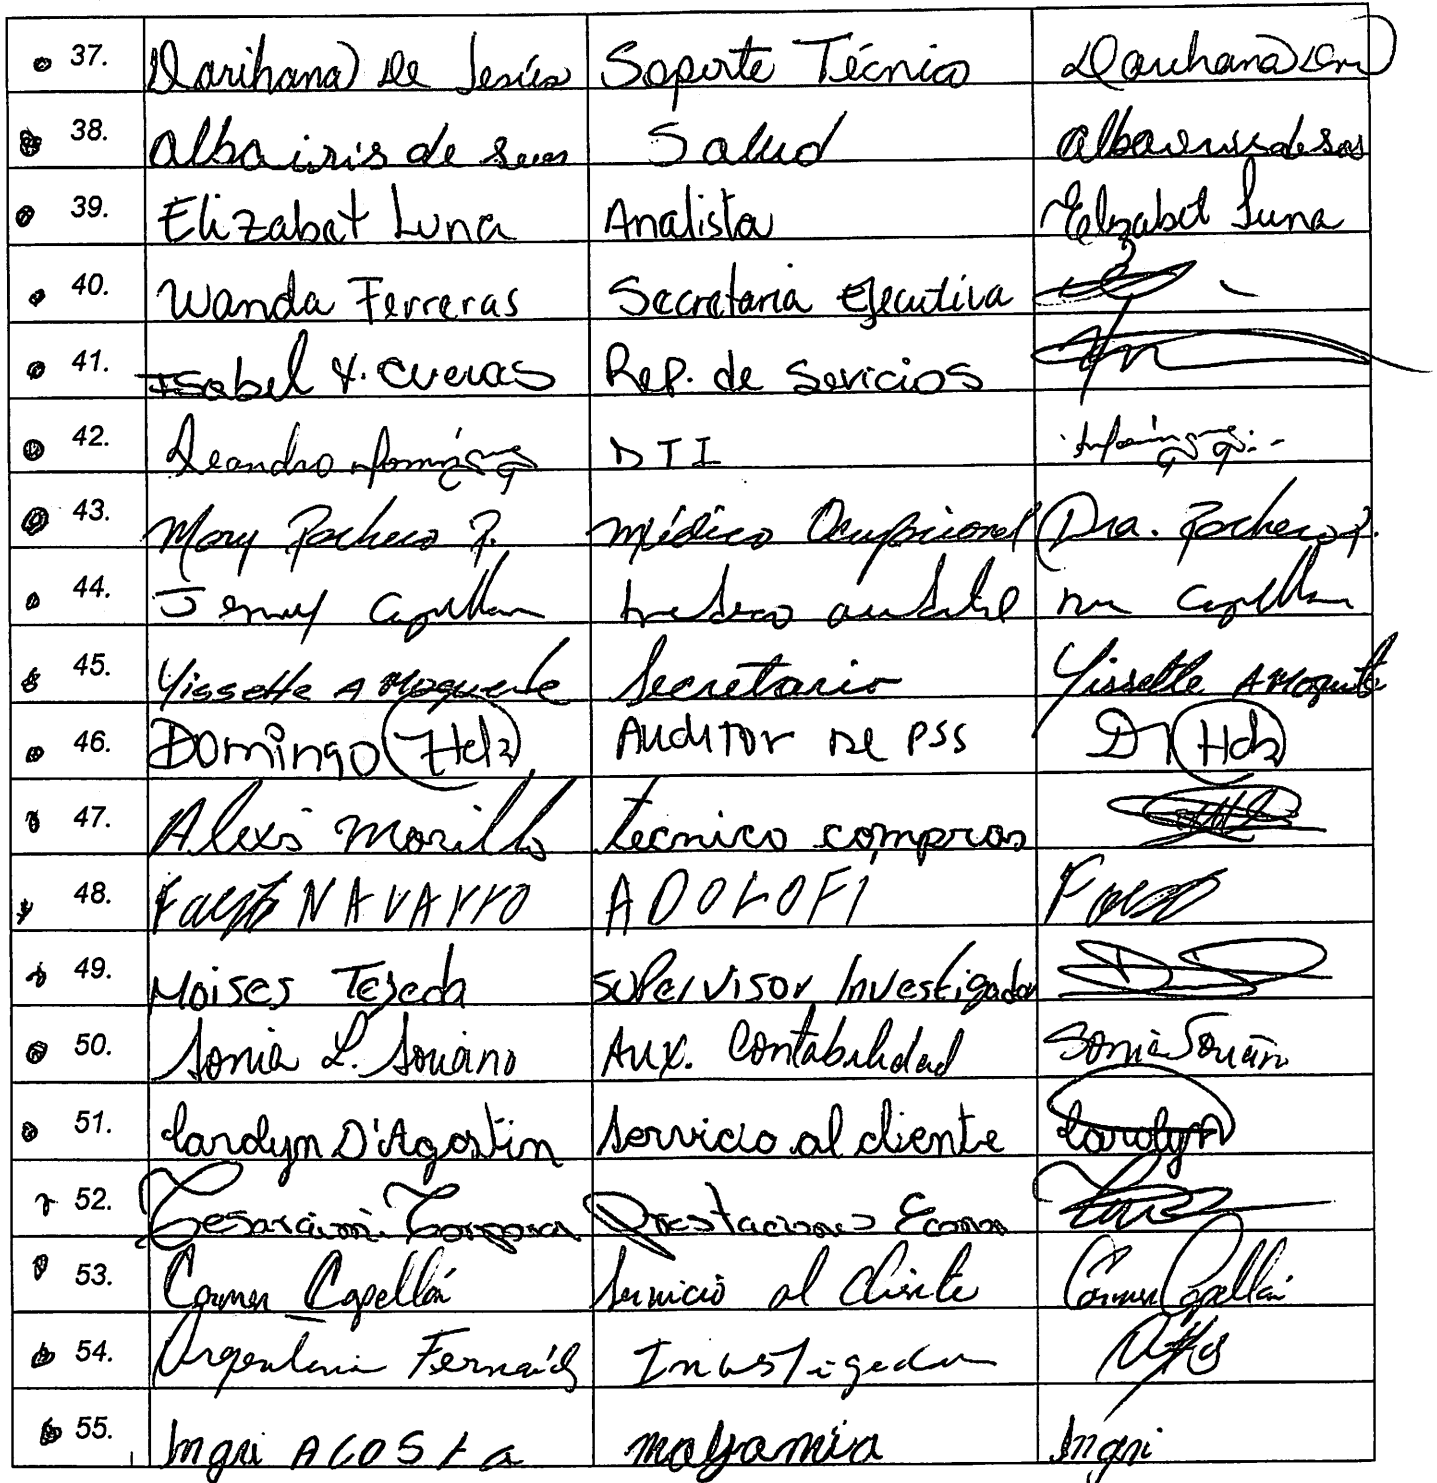 37. Darihana De Jesús Soporte Técnico Darihana
38. alba iris de Salud
39. Elizabet Luna Analista Elizabet Luna
40. Wanda Ferreras Secretaria Ejecutiva
41. Isabel Y. Cuevas Rep. de Sevicios
42. Leandro DTI
43. Mary Pacheco P. Médico Ocupacional Dra. Pacheco P.
44. Capellan Capellan
45. Yissette A Secretaria Yissette A
46. Domingo Hdz AUDITOR DE PSS D Hdz
47. Alexis Morillo tecnico compras
48. NAVARRO
49. Moises Tejeda Supervisor Investigador
50. Sonia L. Soriano Aux. Contabilidad Sonia Sorian
51. Carolyn D'Agostin Servicio al cliente Carolyn
52. Prestaciones Econom
53. Carmen Capellán Servicio al Cliente Carmen Capellán
54. Argentina
55. Ingri Acosta Ingri